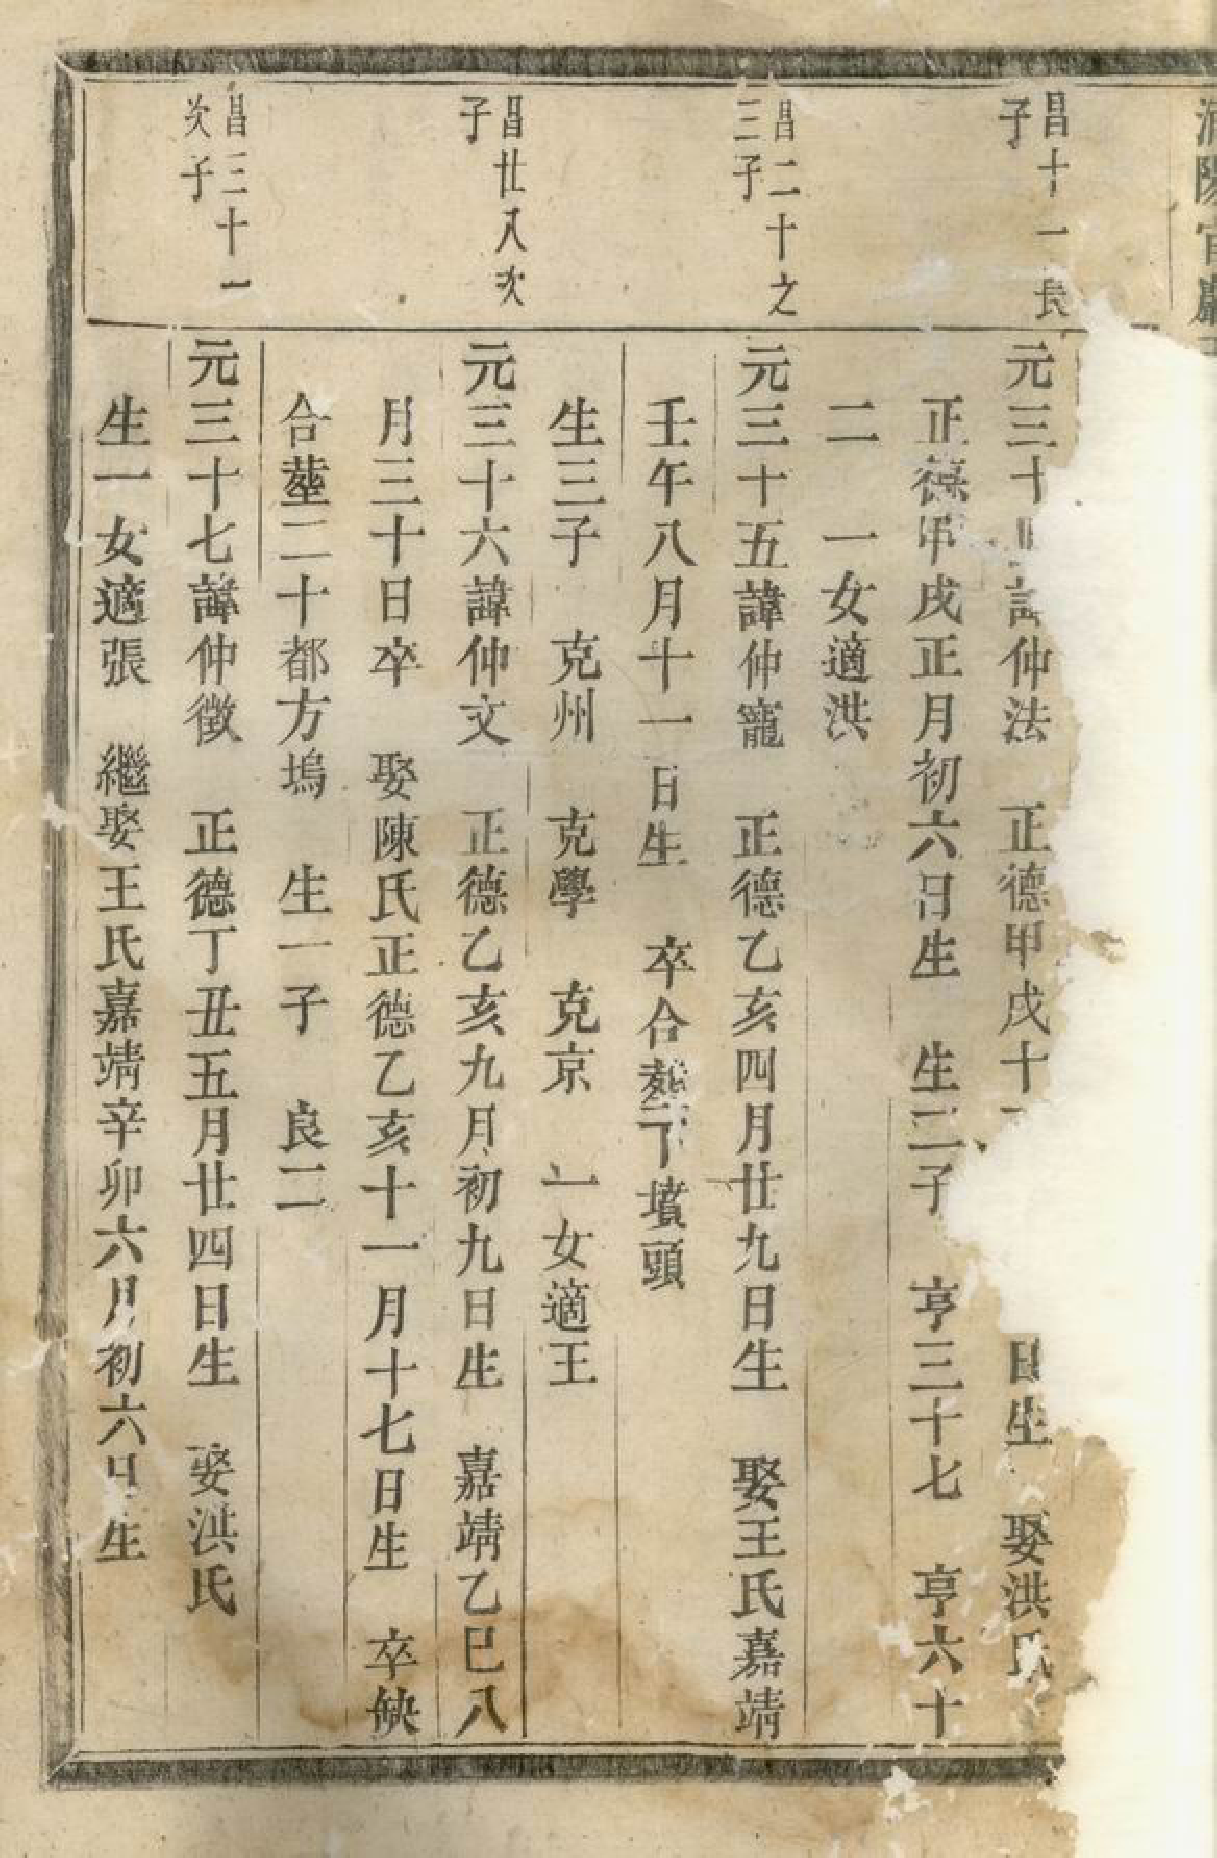 陽官巖
昌十一長
子
元三十諱仲法 正德甲戌十 日生 娶洪氏
正德甲戌正月初六日生 生二子 亨三十七 亨六十
二 一女適洪
昌二十之
三子
元三十五諱仲寵 正德乙亥四月廿九日生 娶王氏嘉靖
壬午八月十一日生 卒合塟下墳頭
生三子 克州 克學 克京 一女適王
昌廿八次
子
元三十六諱仲文 正德乙亥九月初九日生 嘉靖乙巳八
月三十日卒 娶陳氏正德乙亥十一月十七日生 卒缺
合塟二十都方塢 生一子 良二
昌三十一
次子
元三十七諱仲徵 正德丁丑五月廿四日生 娶洪氏
生一女適張 繼娶王氏嘉靖辛卯六月初六日生